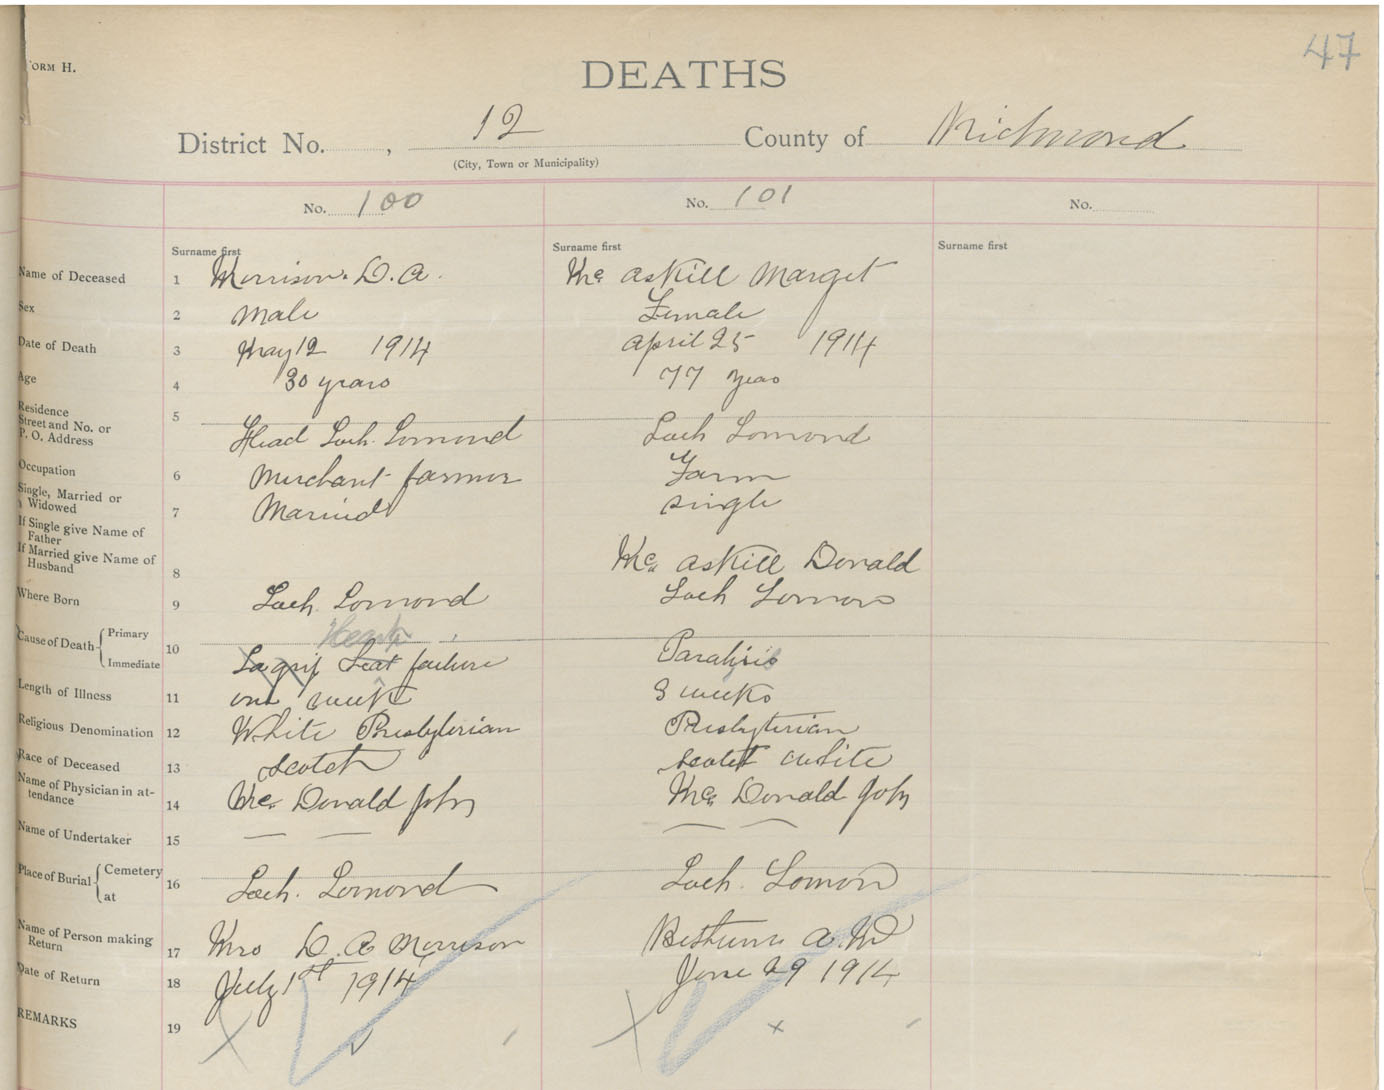 47
FORM H.
DEATHS
District No. , 12 County of Richmond
(City, Town or Municipality)
No. 100 No. 101 No.
Surname first Surname first Surname first
Name of Deceased 1 Morrison. D. A. Mc Askill Marget
Sex 2 Male Female
Date of Death 3 May 12 1914 April 25 1914
Age 4 30 years 77 years
Residence
Street and No. or
P. O. Address 5 Head Loch. Lomond Loch Lomond
Occupation 6 Merchant farmer Farm
Single, Married or
Widowed 7 Married single
If Single give Name of
Father
If Married give Name of
Husband 8 Mc Askill Donald
Where Born 9 Loch. Lomond Loch Lomon
Cause of Death Primary 10 Heart
Immediate Lagrip Heat failure Paralisis
Length of Illness 11 one week 3 weeks
Religious Denomination 12 White Presbyterian Presbyterian
Race of Deceased 13 Scotch Scotch white
Name of Physician in at-
tendance 14 Mc Donald John Mc Donald John
Name of Undertaker 15 — — — —
Place of Burial Cemetery
at 16 Loch. Lomond Loch. Lomon
Name of Person making
Return 17 Mrs D. A Morrison Bethune A. W
Date of Return 18 July 1st 1914 June 29 1914
REMARKS 19